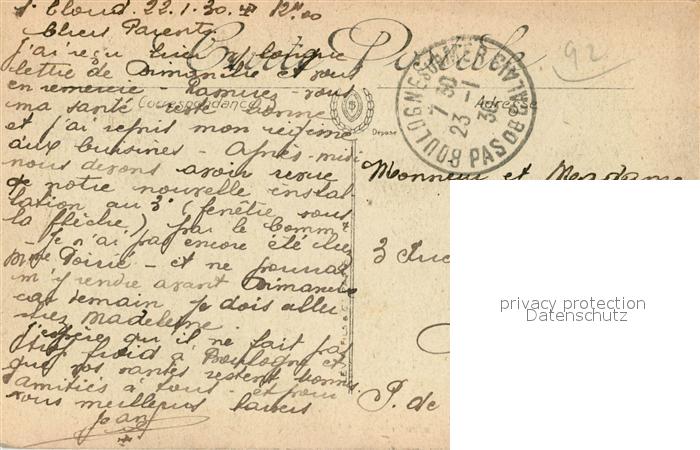 St Cloud. 22.1.30. 12h.00
Chers Parents.
j'ai reçu hier v/ longue
lettre de Dimanche et vous
en remercie - Rassurez-vous
ma santé reste bonne
et j'ai repris mon régime
aux cuisines - Après-midi
nous devons avoir revue
de notre nouvelle instal
lation au 3e (fenêtre sous
la flèche) par le Commt
Je n'ai pas encore été chez
Mme Poirié - et ne pourrai
m'y rendre avant Dimanche
car demain je dois aller
chez Madeleine.
J'espère qu'il ne fait pas
trop froid à Boulogne et
que vos santés restent bonnes
amitiés à tous - et pour
vous meilleurs baisers
Carte Postale
Correspondance
Adresse
BOULOGNE-SUR-MER PAS DE CALAIS
7 30
23 - 1
30
92
Monsieur et Madame
3 Rue
P. de
privacy protection
Datenschutz